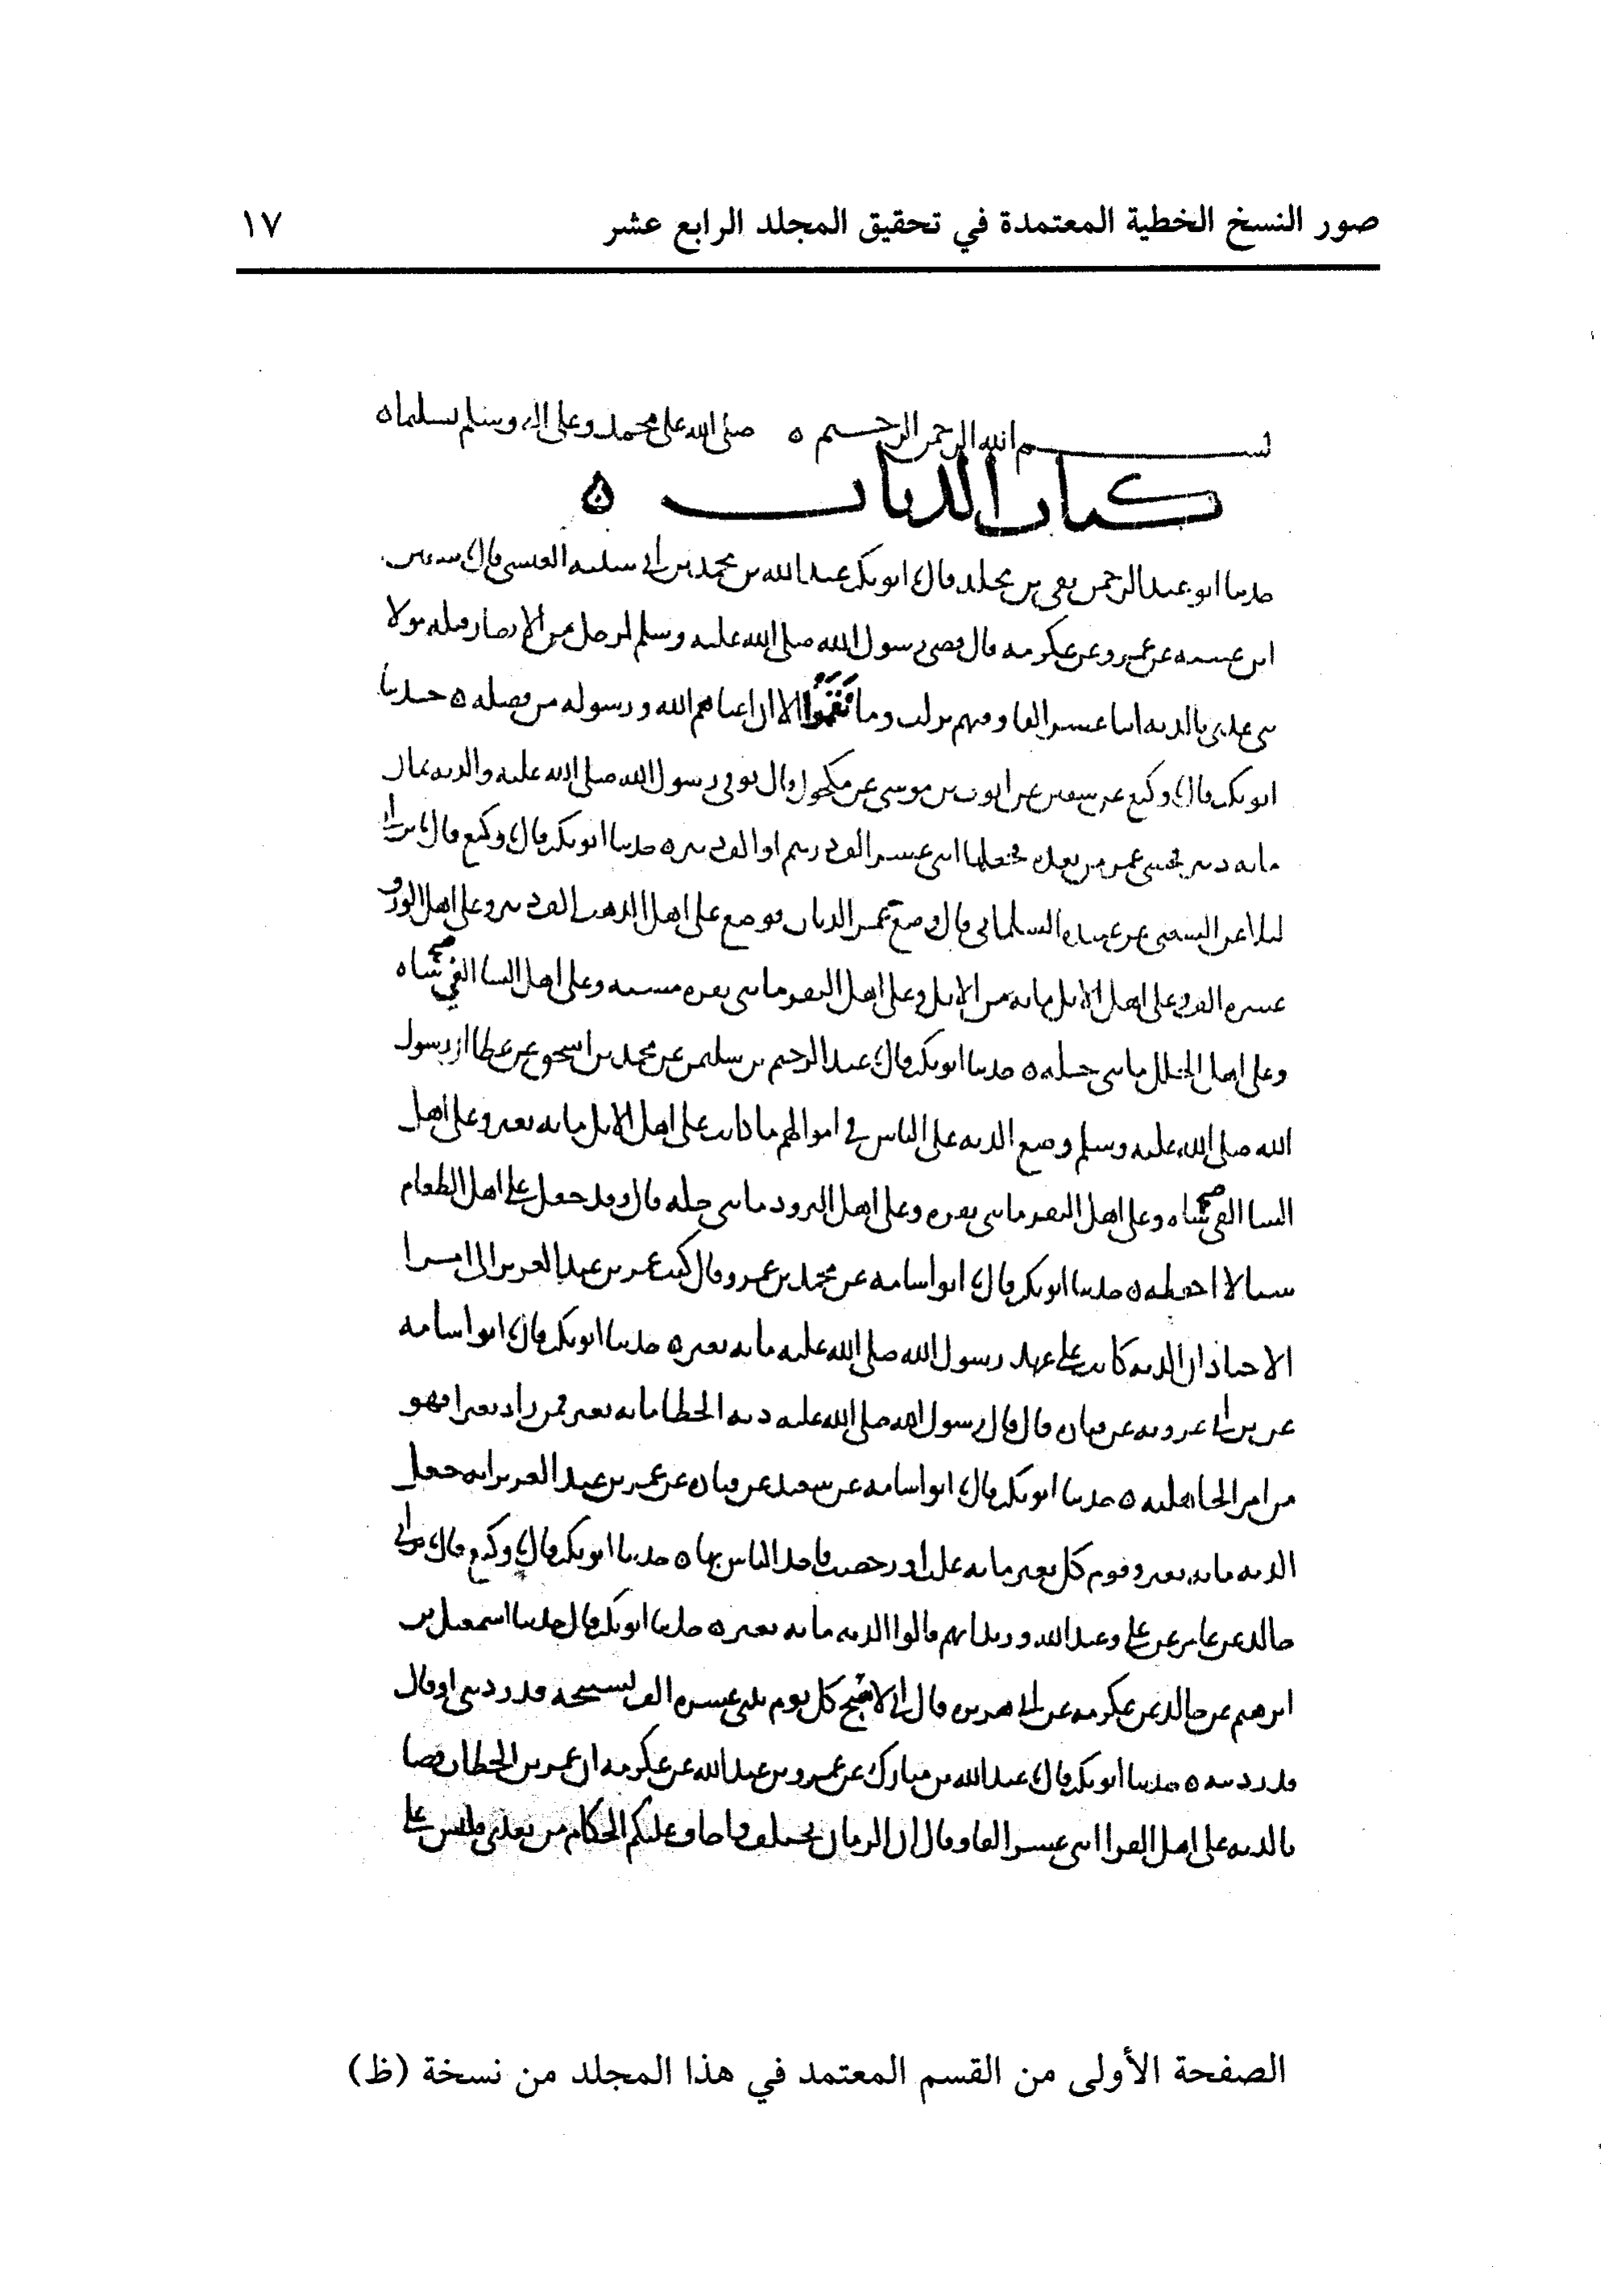 صور النسخ الخطية المعتمدة في تحقيق المجلد الرابع عشر ١٧
بسم الله الرحمن الرحيم ه صلى الله على محمد وعلى اله وسلم تسليما ه
كتاب الديات ه
حدثنا ابو عبد الرحمن بقي بن مخلد قال ابو بكر عبد الله بن محمد بن ابي شيبه العبسي قال سفين
ابن عيينه عن عمرو عن عكرمه قال قضى رسول الله صلى الله عليه وسلم لرجل من الانصار قتله مولا
بني عدي بالديه اثنا عشر الفا وفيهم نزلت وما نَقَمُوا الا ان اغناهم الله ورسوله من فضله ه حدثنا
ابو بكر قال وكيع عن سفين عن ايوب بن موسى عن مكحول قال توفي رسول الله صلى الله عليه والديه ثمان
مايه دينر فخشي عمر من بعده فجعلها اثني عشر الف درهم او الف دينر ه حدثنا ابو بكر قال وكيع قال بن ابي
ليلا عن الشعبي عن عبيده السلماني قال وضع عمر الديات فوضع على اهل الذهب الف دينر وعلى اهل الورق
عشره الف وعلى اهل الابل مايه من الابل وعلى اهل البقر مايتي بقره مسنه وعلى اهل الشا الفي شاه
وعلى اهل الحلل مايتي حله ه حدثنا ابو بكر قال عبد الرحيم بن سليمن عن محمد بن اسحق عن عطا ان رسول
الله صلى الله عليه وسلم وضع الديه على الناس في اموالهم ما كانت على اهل الابل مايه بعير وعلى اهل
الشا الفي شاه وعلى اهل البقر مايتي بقره وعلى اهل البرود مايتي حله قال وقد جعل على اهل الطعام
شيا لا احفظه ه حدثنا ابو بكر قال ابو اسامه عن محمد بن عمرو قال كتب عمر بن عبد العزيز الى امرا
الاجناد ان الديه كانت على عهد رسول الله صلى الله عليه مايه بعير ه حدثنا ابو بكر قال ابو اسامه
عن بن ابي عروبه عن قتاده قال قال رسول الله صلى الله عليه ديه الخطا مايه بعير فمن زاد بعيرا فهو
من امر الجاهليه ه حدثنا ابو بكر قال ابو اسامه عن سعيد عن قتاده عن عمر بن عبد العزيز انه جعل
الديه مايه بعير وقوم كل بعير مايه غلت او رخصت فاخذ الناس بها ه حدثنا ابو بكر قال وكيع قال بن ابي
خالد عن عامر عن علي وعبد الله وزيد انهم قالوا الديه مايه بعير ه حدثنا ابو بكر قال حدثنا اسمعيل بن
ابرهيم عن خالد عن عكرمه عن ابي هريره قال اني لاسبح كل يوم ثنتي عشره الف تسبيحه قدر ديتي او قال
قدر ديته ه حدثنا ابو بكر قال عبد الله بن مبارك عن عمرو بن عبد الله عن عكرمه ان عمر بن الخطاب قضا
بالديه على اهل القرا اثني عشر الفا وقال ان الزمان يختلف واخاف عليكم الحكام من بعدي فليس على
الصفحة الأولى من القسم المعتمد في هذا المجلد من نسخة (ظ)